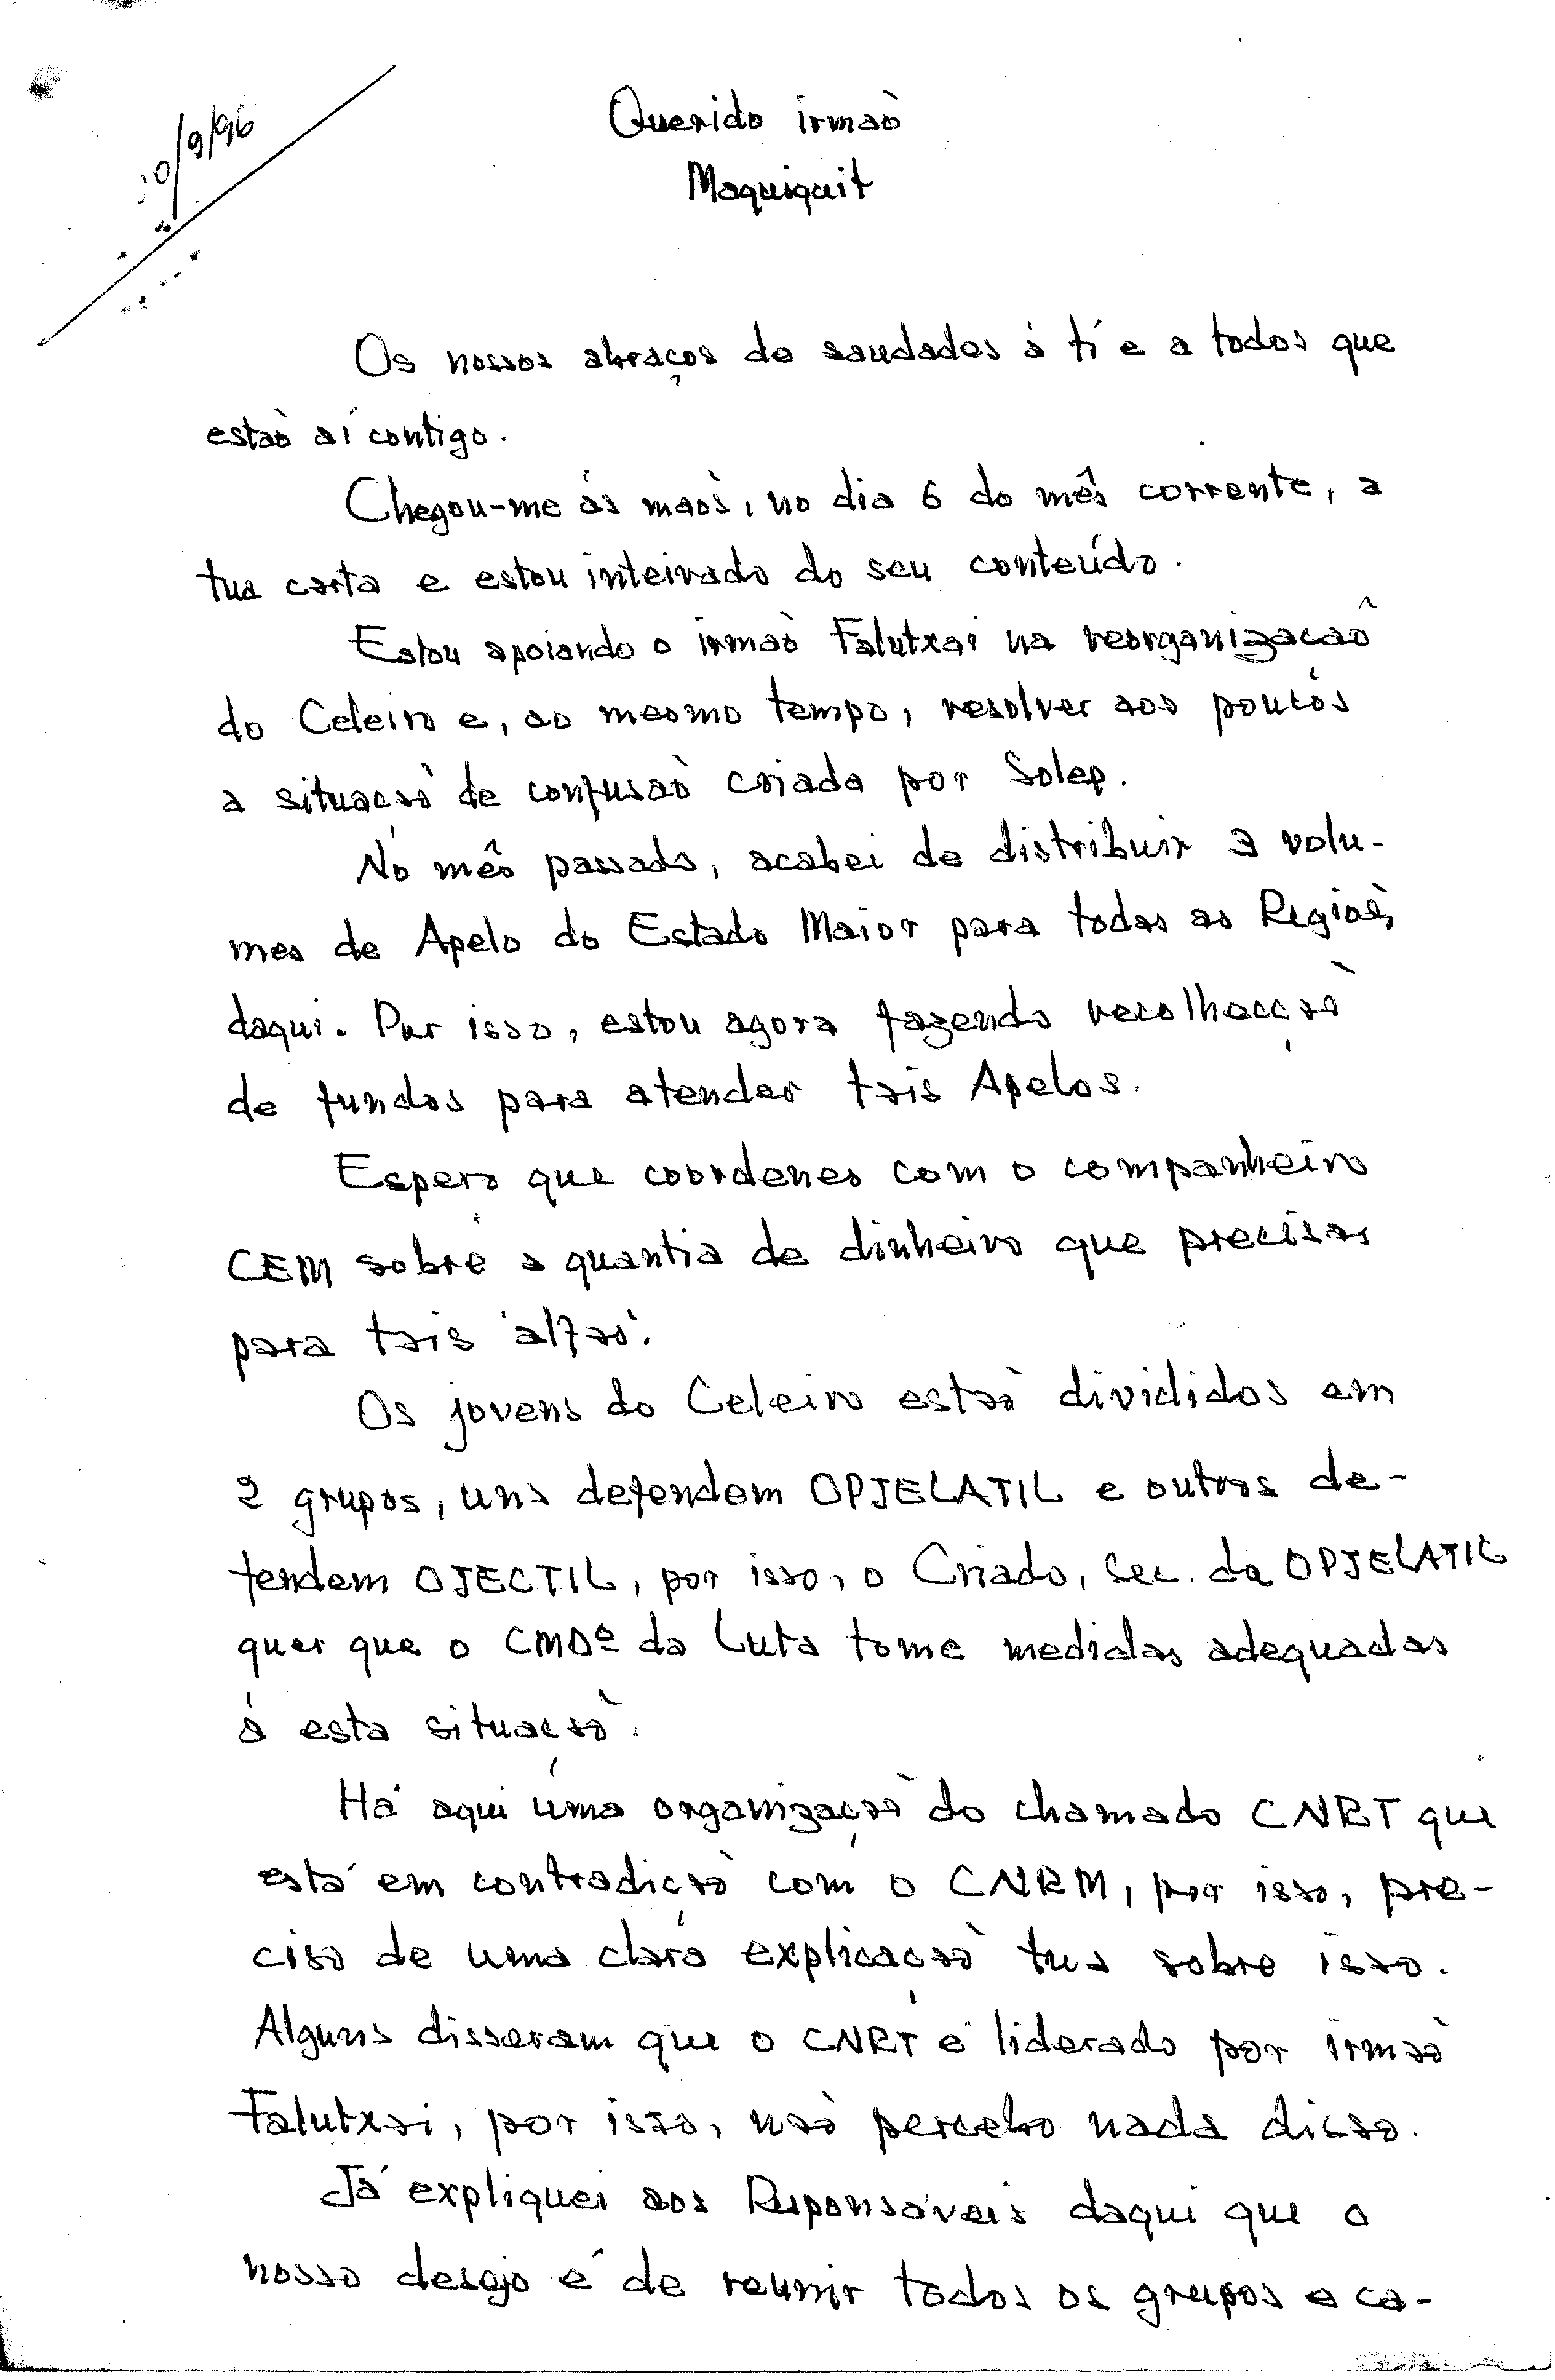 10/9/96
Querido irmaò
Maquiquit
Os nossos abraços de saudades à ti e a todos que
estaò aí contigo.
Chegou-me às maòs, no dia 6 do mês corrente, a
tua carta e estou inteirado do seu conteúdo.
Estou apoiando o irmaò Falutxai na reorganizaçaô
do Celeiro e, ao mesmo tempo, resolver aos poucos
a situaçaò de confusaò criada por Solep.
No mês passado, acabei de distribuir 3 volu-
mes de Apelo do Estado Maior para todas as Regioès
daqui. Por isso, estou agora fazendo recolhacçaò
de fundos para atender tais Apelos.
Espero que coordenes com o companheiro
CEM sobre a quantia de dinheiro que precisas
para tais
Os jovens do Celeiro estaò divididos em
2 grupos, uns defendem OPJELATIL e outros de-
fendem OJECTIL, por isso, o Criado, Sec. da OPJELATIL
quer que o CMDº da Luta tome medidas adequadas
à esta situaçaò.
Há aqui uma organizaçaò do chamado CNRT que
está em contradiçaò com o CNRM, por isso, pre-
ciso de uma clara explicaçaò tua sobre isso.
Alguns disseram que o CNRT é liderado por irmaò
Falutxai, por isso, naò percebo nada disso.
Já expliquei aos Responsáveis daqui que o
nosso desejo é de reunir todos os grupos e ca-